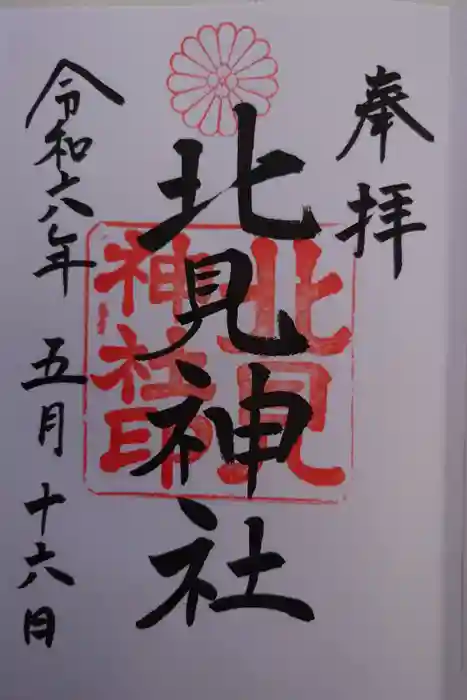 奉拝
北見神社
北見
神社印
令和六年 五月 十六日